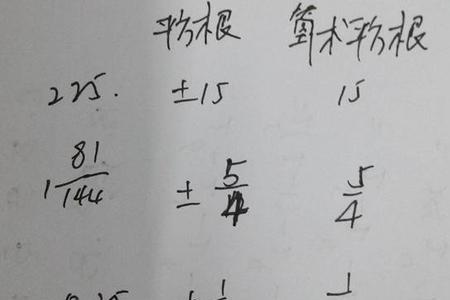 平方根 算术平方根
225. ±15 15
1 81/144 ± 5/4 5/4